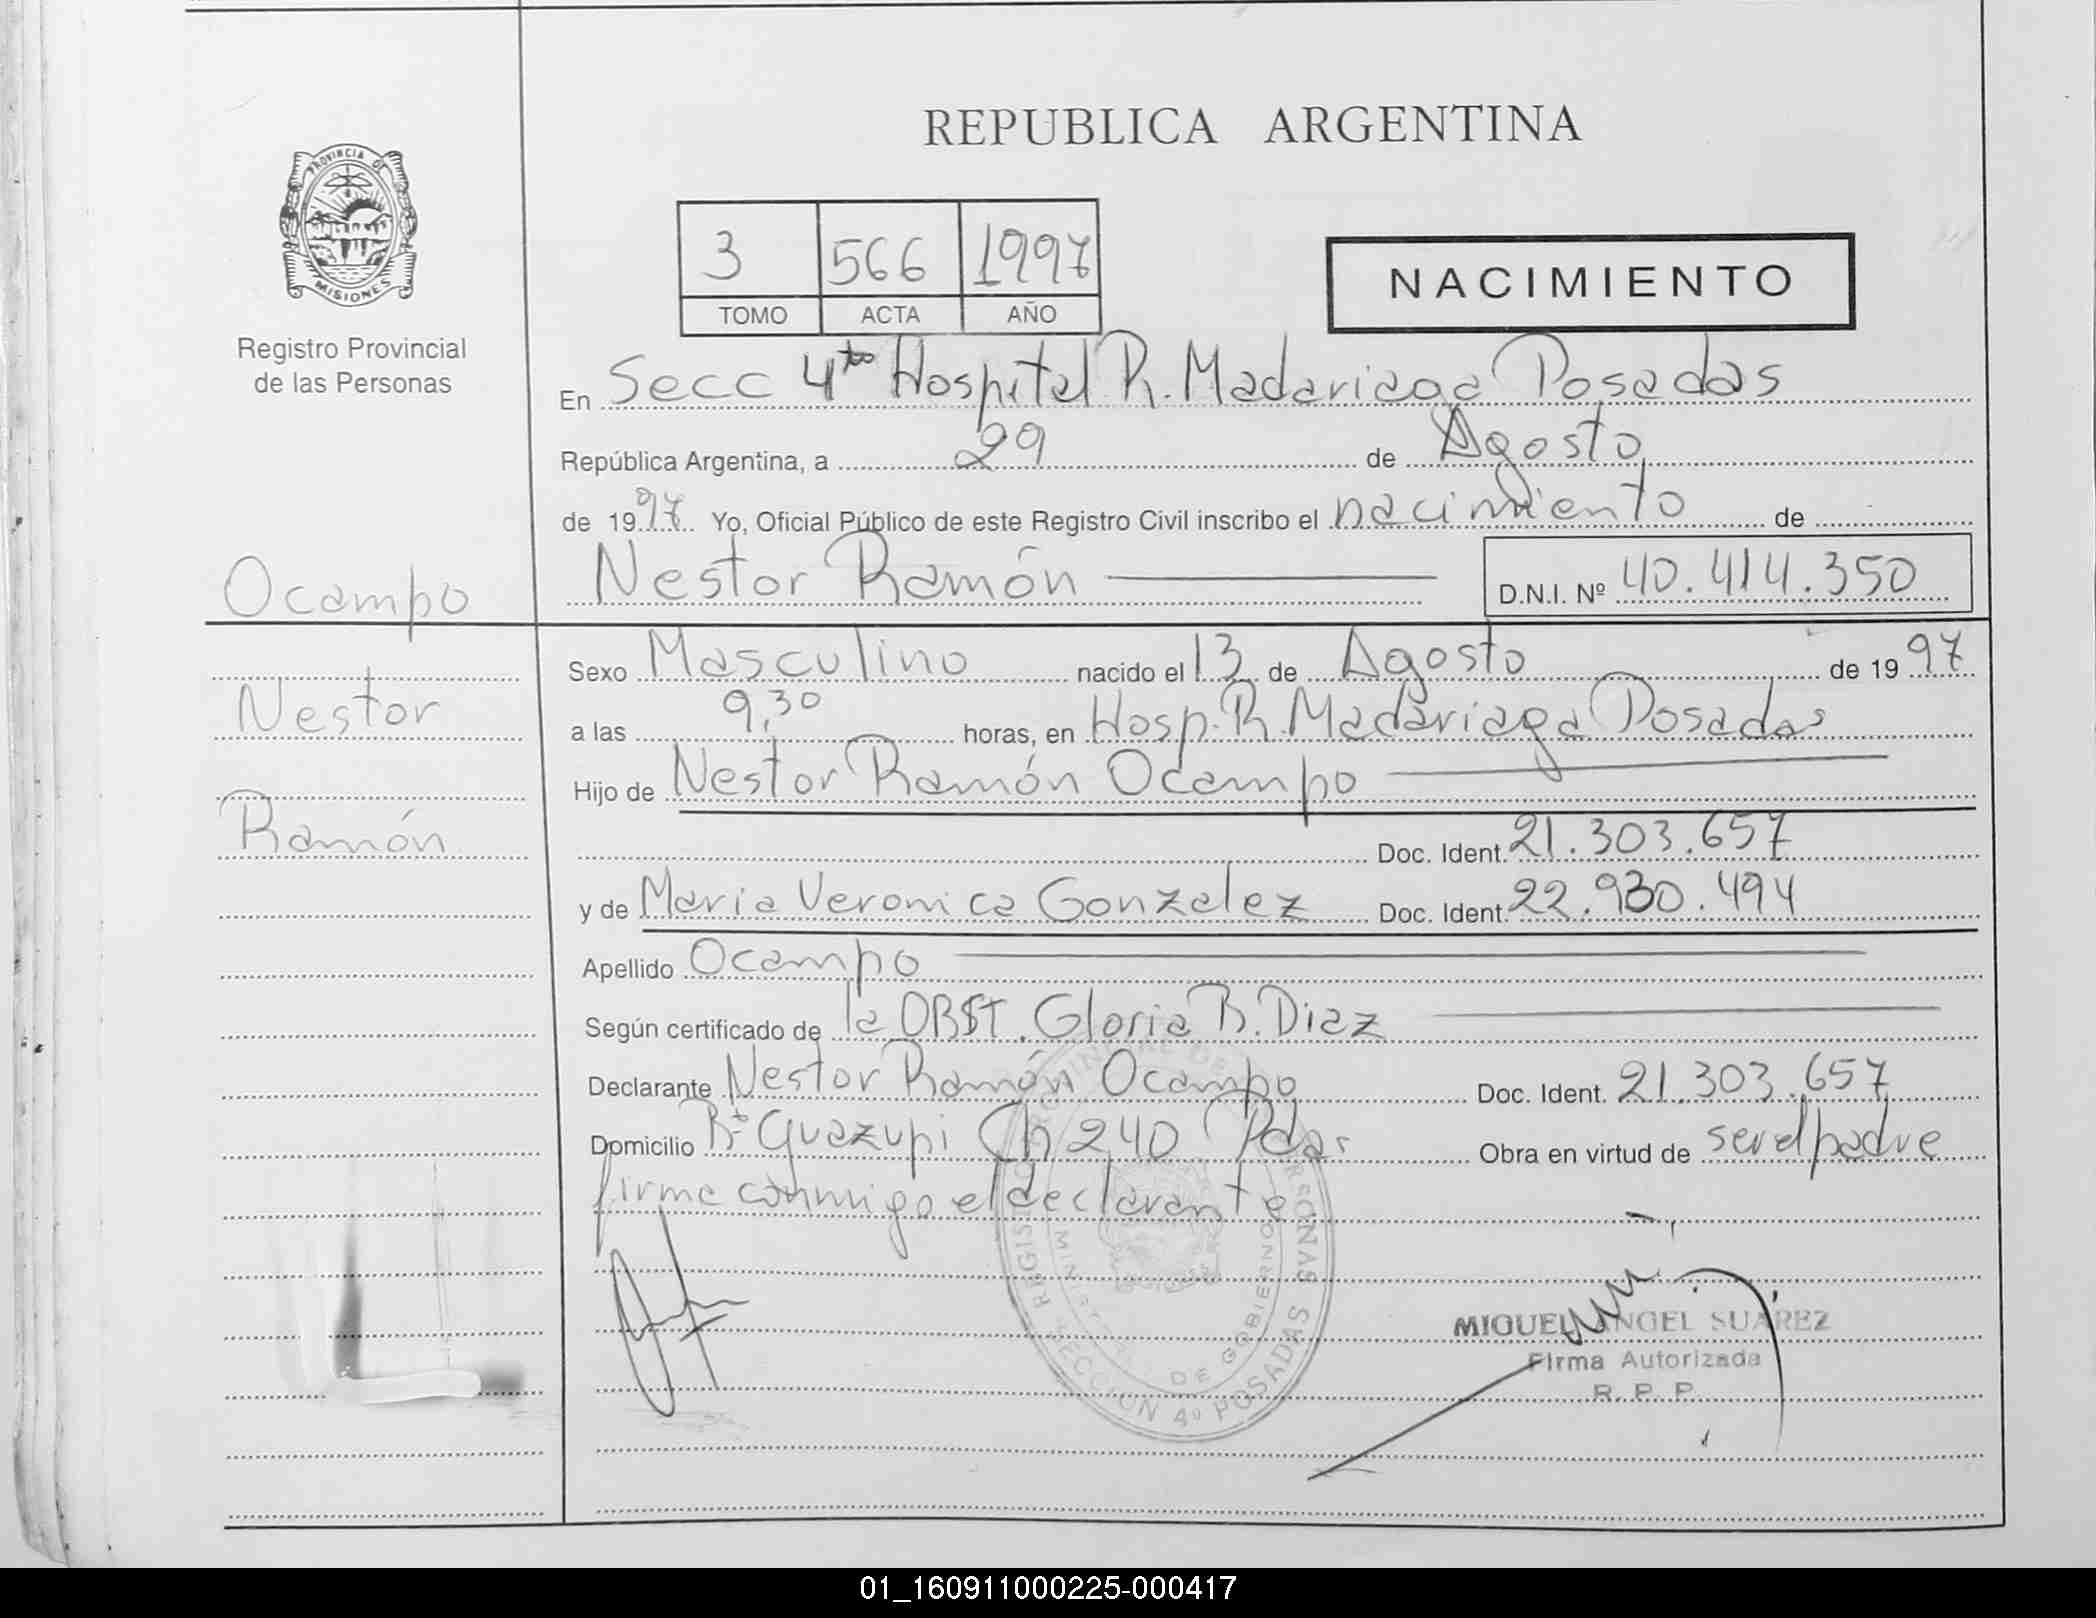 REPUBLICA ARGENTINA
PROVINCIA DE
MISIONES
Registro Provincial
de las Personas
3 566 1997
TOMO ACTA AÑO
NACIMIENTO
En Secc 4ta Hospital R. Madariaga Posadas
República Argentina, a 29 de Agosto
de 1997 Yo, Oficial Público de este Registro Civil inscribo el nacimiento de
Nestor Ramón D.N.I. Nº 40.414.350
Ocampo
Nestor
Ramón
Sexo Masculino nacido el 13 de Agosto de 1997
a las 9,30 horas, en Hosp. R. Madariaga Posadas
Hijo de Nestor Ramón Ocampo
Doc. Ident. 21.303.657
y de Maria Veronica Gonzalez Doc. Ident. 22.930.494
Apellido Ocampo
Según certificado de la OBST. Gloria B. Diaz
Declarante Nestor Ramón Ocampo Doc. Ident. 21.303.657
Domicilio Bº Guazupi Ch 240 Pdas Obra en virtud de ser el padre
firma conmigo el declarante
MIGUEL ANGEL SUAREZ
Firma Autorizada
R. P. P.
SECCION 4º POSADAS
DE GOBIERNO
01_160911000225-000417